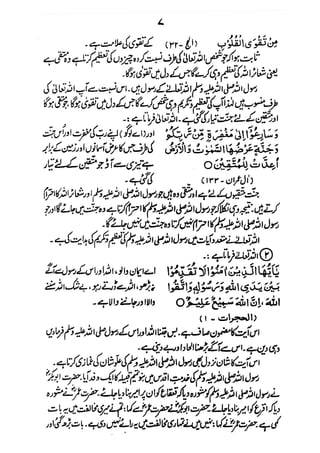 ۷
مِنْ تَقْوَى الْقُلُوْبِ (الحج - ۳۲) کے تقویٰ کی علامت ہے۔
ثابت ہوا کہ جو شخص اللہ تعالیٰ کی طرف نسبت کردہ چیزوں کی تعظیم کرتا ہے وہ متقی ہے
یعنی شعائر اللہ کی تعظیم وہی کرے گا جس کے دل میں تقویٰ ہوگا۔
رسول اللہ صلی اللہ علیہ وسلم اللہ تعالیٰ کے رسول ہیں۔ اس نسبت سے آپ اللہ تعالیٰ کی
طرف منسوب ہیں لہٰذا آپ کی تعظیم و تکریم وہی شخص کرے گا جس کے دل میں تقویٰ ہوگا جو متقی ہوگا
اور متقین کے لئے جنت تیار کی گئی ہے۔ اللہ تعالیٰ فرماتا ہے:
وَسَارِعُوْا اِلٰى مَغْفِرَةٍ مِّنْ رَّبِّكُمْ اور (اے لوگو) اپنے رب کی مغفرت اور اُس جنت
وَجَنَّةٍ عَرْضُهَا السَّمٰوٰتُ وَالْاَرْضُ کی طرف جس کا عرض آسمانوں اور زمین کے برابر
اُعِدَّتْ لِلْمُتَّقِيْنَ ○ ہے تیزی سے آؤ جو متقین کے لئے تیار
(آل عمران - ۱۳۳) کی گئی ہے۔
جنت متقیوں کے لئے ہے اور متقی وہ ہیں جو رسول اللہ صلی اللہ علیہ وسلم اور شعائر اللہ کا احترام
کرتے ہیں۔ نتیجہ یہی نکلا کہ جو رسول اللہ صلی اللہ علیہ وسلم کا احترام کرتا ہے وہ جنت میں جائے گا اور جو
رسول اللہ صلی اللہ علیہ وسلم کا احترام نہیں کرتا وہ جنت میں نہیں جائے گا۔
اللہ تعالیٰ نے متعدد آیات میں رسول اللہ صلی اللہ علیہ وسلم کی تعظیم و تکریم کی ہدایت کی ہے۔
② اللہ تعالیٰ فرماتا ہے:
يٰٓاَيُّهَا الَّذِيْنَ اٰمَنُوْا لَا تُقَدِّمُوْا اے ایمان والو، اللہ اور اس کے رسول سے آگے
بَيْنَ يَدَىِ اللّٰهِ وَرَسُوْلِهٖ وَاتَّقُوا نہ بڑھو، اللہ سے ڈرتے رہو، بے شک اللہ سننے
اللّٰهَ ۭ اِنَّ اللّٰهَ سَمِيْعٌ عَلِيْمٌ ○ والا اور جاننے والا ہے۔
(الحجرات - ۱)
اس آیت کا مضمون صاف ہے۔ بس جتنا اللہ اور اس کے رسول صلی اللہ علیہ وسلم فرما دیں
وہی دین ہے۔ اس سے آگے بڑھنا الحاد اور بے دینی ہے۔
اس آیت کا شانِ نزول بھی رسول اللہ صلی اللہ علیہ وسلم کی علوِ شان کی غمازی کرتا ہے۔
رسول اللہ صلی اللہ علیہ وسلم کی خدمت اقدس میں بنو تمیم قبیلہ کا ایک وفد آیا۔ حضرت ابوبکرؓ
نے رسول اللہ صلی اللہ علیہ وسلم کو مشورہ دیا کہ قعقاع کو ان پر امیر بنا دیا جائے۔ حضرت عمرؓ نے مشورہ
دیا کہ اقرع کو امیر بنا دیا جائے۔ حضرت ابوبکرؓ نے حضرت عمرؓ سے کہا: تم نے میری مخالفت میں یہ بات
کہی ہے۔ حضرت عمرؓ نے کہا: نہیں میں نے تمہاری مخالفت میں نہیں دی ہے۔ بات بڑھ گئی اور